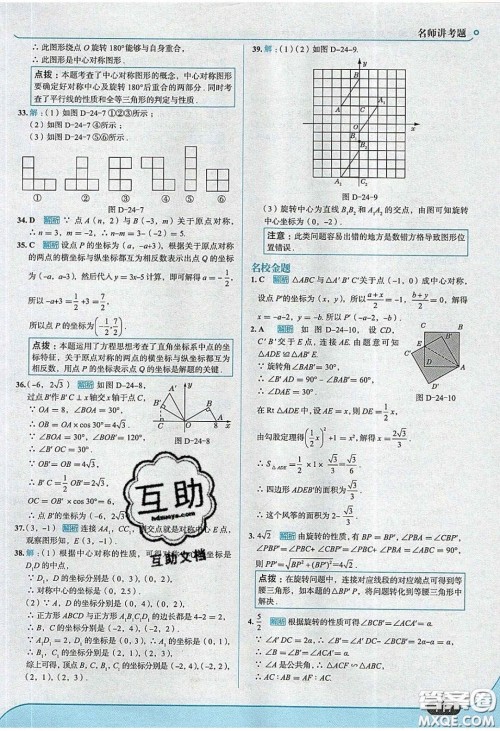 名师讲考题
∴ 此图形绕点 O 旋转 180°能够与自身重合，
∴ 此图形是中心对称图形．
点拨：本题考查了中心对称图形的概念，中心对称图形要确定好对称中心及旋转 180°后重合的两部分．同时考了平行线的性质和全等三角形的判定与性质．
33. 解：(1) 如图 D-24-7 ①②③所示；
(2) 如图 D-24-7 ④所示；
(3) 如图 D-24-7 ⑤⑥所示．
① ② ③ ④ ⑤ ⑥
图 D-24-7
34. D 解析 ∵ 点 A(n, 2) 与 B(-3, m) 关于原点对称，
∴ n = 3, m = -2, ∴ n-m = 3-(-2) = 5.
35. C 解析 设点 P 的坐标为 (a, -a+3)，根据关于原点对称
的两点的横坐标与纵坐标都互为相反数表示出点 Q 的坐标
为 (-a, a-3)，然后代入 y = 3x-5 计算，即可解得 a = -1/2,
所以 -a+3 = 1/2+3 = 7/2,
所以点 P 的坐标为 (-1/2, 7/2).
点拨：本题运用了方程思想考查了直角坐标系中点的坐标特征，关于原点对称的两点的横坐标与纵坐标都互为相反数，用点 P 的坐标表示点 Q 的坐标是解题的关键．
36. (-6, 2√3) 解析 如图 D-24-8,
过点 B′ 作 B′C⊥x 轴交 x 轴于点 C,
∵ OA = 8, ∠BOA = 30°,
∴ OB = OA cos 30° = 4√3.
∵ ∠BOA = 30°, ∠BOB′ = 120°,
∴ ∠B′OC = 30°.
图 D-24-8
∵ OB′ = OB = 4√3,
∴ B′C = 1/2 OB′ = 2√3,
OC = OB′ × cos 30° = 6,
∴ 点 B′ 的坐标为 (-6, 2√3).
37. (3, -1) 解析 连接 AA₁, CC₁, 则交点就是对称中心 E 点，
观察图形知，E(3, -1).
38. 解：(1) 根据中心对称的性质，可得对称中心的坐标是
D₁D 的中点，
∵ D₁, D 的坐标分别是 (0, 3), (0, 2),
∴ 对称中心的坐标是 (0, 2.5).
(2) ∵ A, D 的坐标分别是 (0, 4), (0, 2),
∴ 正方形 ABCD 与正方形 A₁B₁C₁D₁ 的边长都是 4-2 = 2,
∴ B, C 的坐标分别是 (-2, 4), (-2, 2),
∵ A₁D₁ = 2, D₁ 的坐标是 (0, 3), ∴ A₁ 的坐标是 (0, 1),
∴ B₁, C₁ 的坐标分别是 (2, 1), (2, 3).
综上可得，顶点 B, C, B₁, C₁ 的坐标分别是 (-2, 4), (-2, 2),
(2, 1), (2, 3).
39. 解：(1)(2) 如图 D-24-9.
图 D-24-9
(3) 旋转中心为直线 B₁B₂ 和 A₁A₂ 的交点，由图可知旋转
中心坐标为 (0, -2).
注意：此类问题容易出错的地方是数错方格导致图形位置错误．
名校金题
1. C 解析 △ABC 与 △A′B′C′ 关于点 (-1, 0) 成中心对称，
设点 P′ 的坐标为 (x, y), 所以 (a+x)/2 = -1, (b+y)/2 = 0,
解得 x = -a-2, y = -b. 所以 P′(-a-2, -b).
2. A 解析 如图 D-24-10, 设 CD,
B′C′ 交于点 E, 连接 AE. 由题意可知
△ADE ≌ △AB′E.
∵ 旋转角 ∠BAB′ = 30°,
∴ ∠B′AD = 60°, ∴ ∠DAE = 30°.
图 D-24-10
在 Rt △ADE 中，设 AE = x, 则 DE = 1/2 x,
由勾股定理得 (1/2 x)² + 1 = x², 解得 x = 2√3/3.
∴ 四边形 ADEB′ 的面积为 √3/3,
∴ 这个风筝的面积为 2-2√3/3.
3. 4√2 解析 由旋转的性质，有 BP = BP′, ∠ABP′ = ∠CBP,
∠PBP′ = ∠ABP′+∠ABP = ∠PBC+∠ABP = ∠ABC = 90°,
所以 PP′ = √(BP²+BP′²) = √(4²+4²) = 4√2.
点拨：在旋转问题中，连接对应线段的对应端点可得到等腰三角形，如本题的 △BP′P, 将问题转化到等腰三角形中解决．
4. 5/2 解析 ∵ 根据旋转的性质可得 ∠BCA = ∠B′CA′ = α,
∵ ∠A′DC = 2α, ∴ ∠B′ = ∠A′DC-∠B′CA′ = 2α-α = α,
∵ ∠B = ∠B′, ∴ ∠B = ∠BCA = α.
∵ ∠A 是公共角，∴ △ACF ∽ △ABC,
∴ AC : AB = AF : AC.
互助
互助文档
答案圈
MXQE.COM